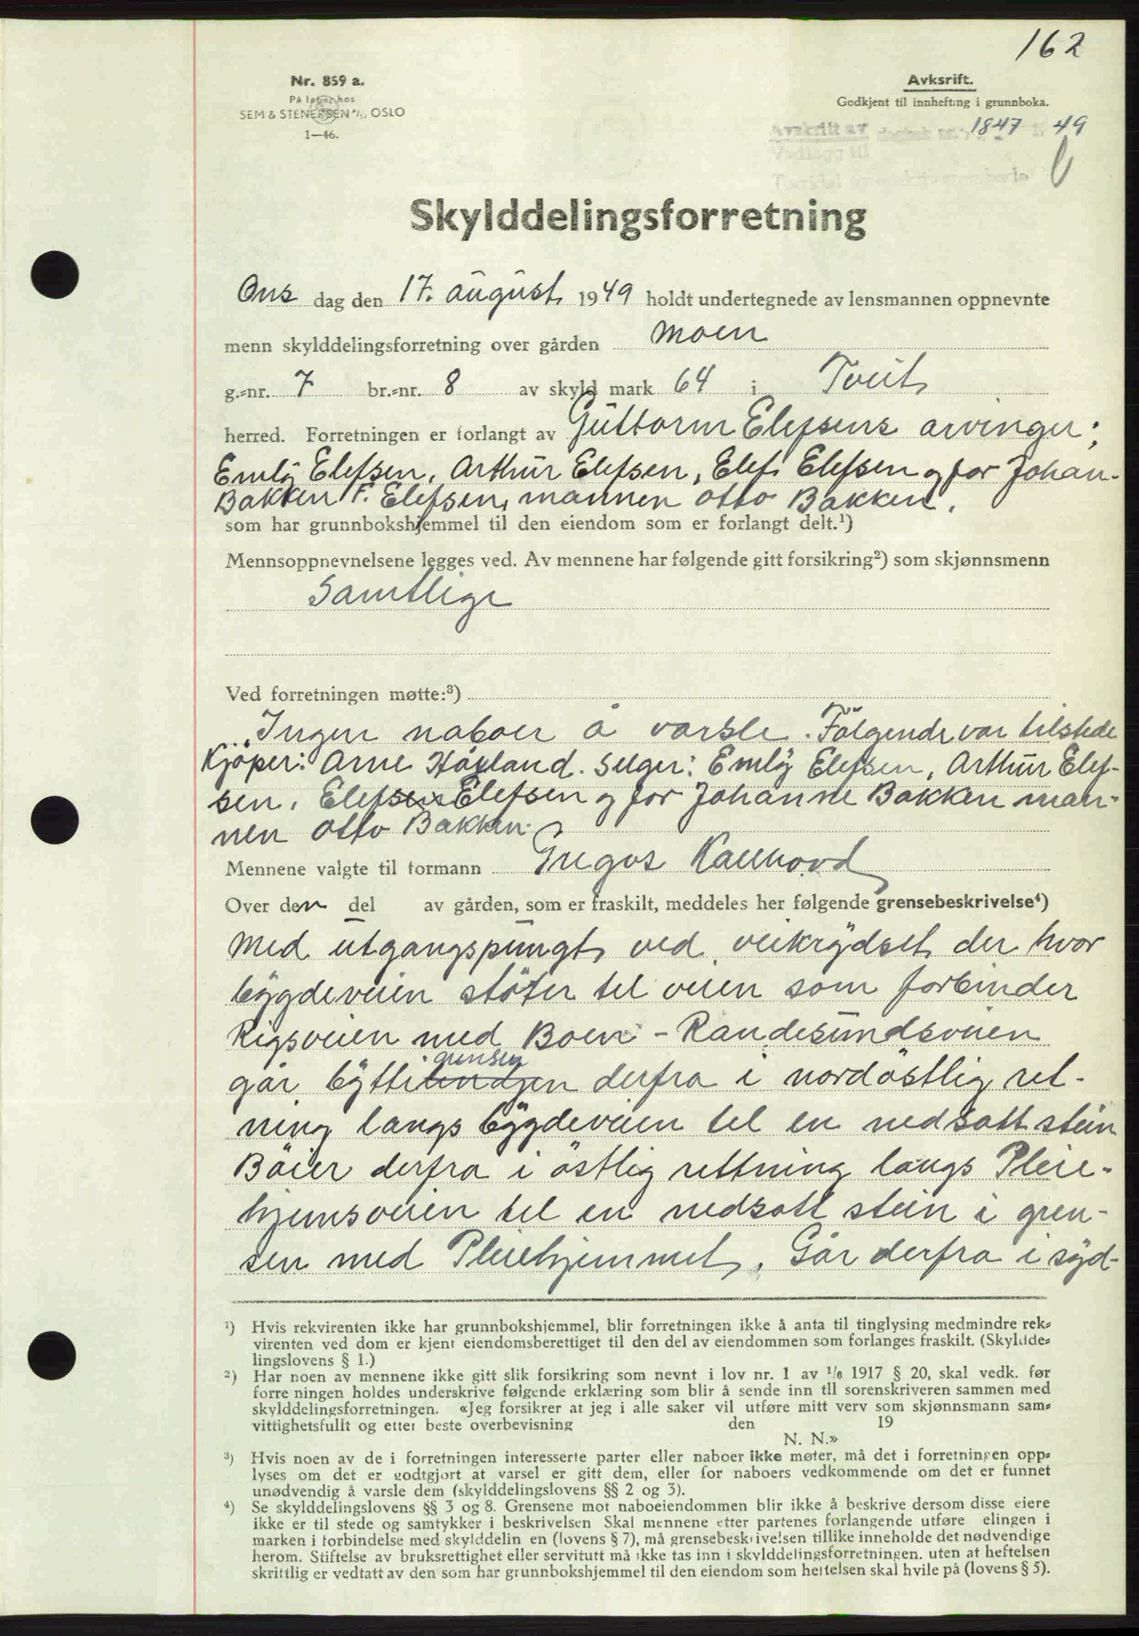 162
Nr. 859 a.
På lager hos
SEM & STENERSEN A/S, OSLO
1—46.
Avksrift.
Godkjent til innhefting i grunnboka.
Avskrift av dagbok nr. 1847 19 49
Vedlegg til
Torridal sorenskriverembede
Skylddelingsforretning
Ons dag den 17. august 1949 holdt undertegnede av lensmannen oppnevnte
menn skylddelingsforretning over gården Moen
g.-nr. 7 br.-nr. 8 av skyld mark 64 i Tveit
herred. Forretningen er forlangt av Guttorm Elefsens arvinger;
Emly Elefsen, Arthur Elefsen, Elef Elefsen og for Johan-
Bakken F. Elefsen, mannen Otto Bakken.
som har grunnbokshjemmel til den eiendom som er forlangt delt.¹)
Mennsoppnevnelsene legges ved. Av mennene har følgende gitt forsikring²) som skjønnsmenn
Samtlige
Ved forretningen møtte:³)
Ingen naboer å varsle. Følgende var tilstede
Kjøper: Arne Høyland. Selger: Emly Elefsen, Arthur Elef-
sen, Elefsen Elefsen og for Johanne Bakken man-
nen Otto Bakken.
Mennene valgte til formann Gregos Kallhovd
Over den del av gården, som er fraskilt, meddeles her følgende grensebeskrivelse⁴)
Med utgangspungt ved veikrydset der hvor
bygdeveien støter til veien som forbinder
Rigsveien med Boen - Randesundsveien
grensen
går byttelindjen derfra i nordøstlig ret-
ning langs bygdeveien til en nedsatt stein
Bøier derfra i østlig rettning langs Pleie-
hjemsveien til en nedsatt stein i gren-
sen med Pleiehjemmet. Går derfra i syd-
¹) Hvis rekvirenten ikke har grunnbokshjemmel, blir forretningen ikke å anta til tinglysing medmindre rek-
virenten ved dom er kjent eiendomsberettiget til den del av eiendommen som forlanges fraskilt. (Skyldde-
lingslovens § 1.)
²) Har noen av mennene ikke gitt slik forsikring som nevnt i lov nr. 1 av ¹/₆ 1917 § 20, skal vedk. før
forre ningen holdes underskrive følgende erklæring som blir å sende inn til sorenskriveren sammen med
skylddelingsforretningen. «Jeg forsikrer at jeg i alle saker vil utføre mitt verv som skjønnsmann sam-
vittighetsfullt og etter beste overbevisning den 19
N. N.»
³) Hvis noen av de i forretningen interesserte parter eller naboer ikke møter, må det i forretningen opp-
lyses om det er godtgjort at varsel er gitt dem, eller for naboers vedkommende om det er funnet
unødvendig å varsle dem (skylddelingslovens §§ 2 og 3).
⁴) Se skylddelingslovens §§ 3 og 8. Grensene mot naboeiendommen blir ikke å beskrive dersom disse eiere
ikke er til stede og samtykker i beskrivelsen Skal mennene etter partenes forlangende utføre elingen i
marken i forbindelse med skylddelin en (lovens § 7), må grensebeskrivelsen tillike inneholde det nødvendige
herom. Stiftelse av bruksrettighet eller servitutt må ikke tas inn i skylddelingsforretningen. uten at heftelsen
skriftlig er vedtatt av den som har grunnbokshjemmel til den eiendom som heftelsen skal hvile på (lovens § 5).